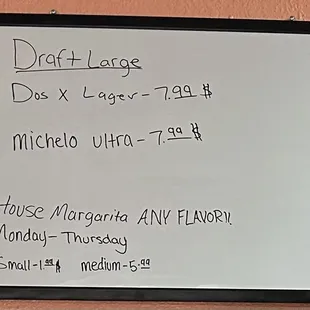 Draft Large
Dos X Lager - 7.99 $
michelo ultra - 7.99 $
House Margarita ANY FLAVOR!!
Monday - Thursday
Small - 1.99 $ medium - 5.99